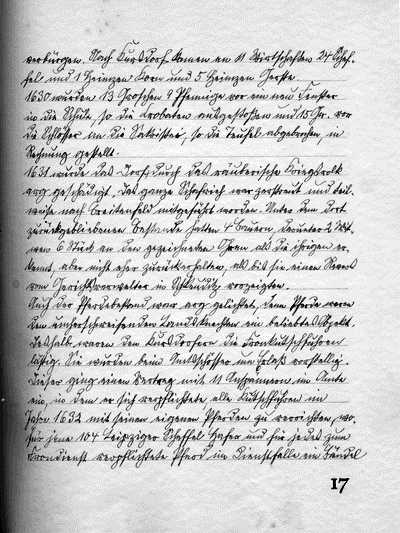 verbürgen. Nach Kursdorf kamen an 11 Wirtschaften 24 Schef-
fel und 1 Heinzen Korn und 5 Heinzen Gerste.
1630 wurden 13 Groschen 9 Pfennige vor ein neu Fenster
in die Schule, so die Croboten ausgestoßen und 15 Gr. vor
die Schlösser an die Sakristei, so die Teufel abgebrochen, in
Rechnung gestellt.
1631 wurde das Dorf durch das räuberische Kriegsvolk
arg geschädigt. Das ganze Schafvieh war zerstreut und teil-
weise nach Breitenfeld mitgeführt worden. Unter dem dort
zurückgebliebenen Bestande hatten 4 Bauern, darunter 2 Wit-
wen 6 Stück an den gezeichneten Ohren als die ihrigen er-
kannt, aber nicht eher zurückerhalten, als bis sie einen Revers
vom Gerichtsverwalter in Schkeuditz vorzeigten.
Auch der Pferdebestand war arg gelichtet, denn Pferde waren
den umherschweifenden Landsknechten ein beliebtes Objekt.
Deshalb waren den Kursdorfern die Fronkutschfuhren
lästig. Sie wurden beim Amtsschösser um Erlaß vorstellig.
Dieser ging einen Vertrag mit 11 Anspännern im Amte
ein, in dem er sich verpflichtete alle Kutschfuhren im
Jahre 1632 mit seinen eigenen Pferden zu verrichten, wo-
für jene 104 Leipziger Scheffel Hafer und für jedes zum
Frondienst verpflichtete Pferd im Dienstfalle ein Bündel
17